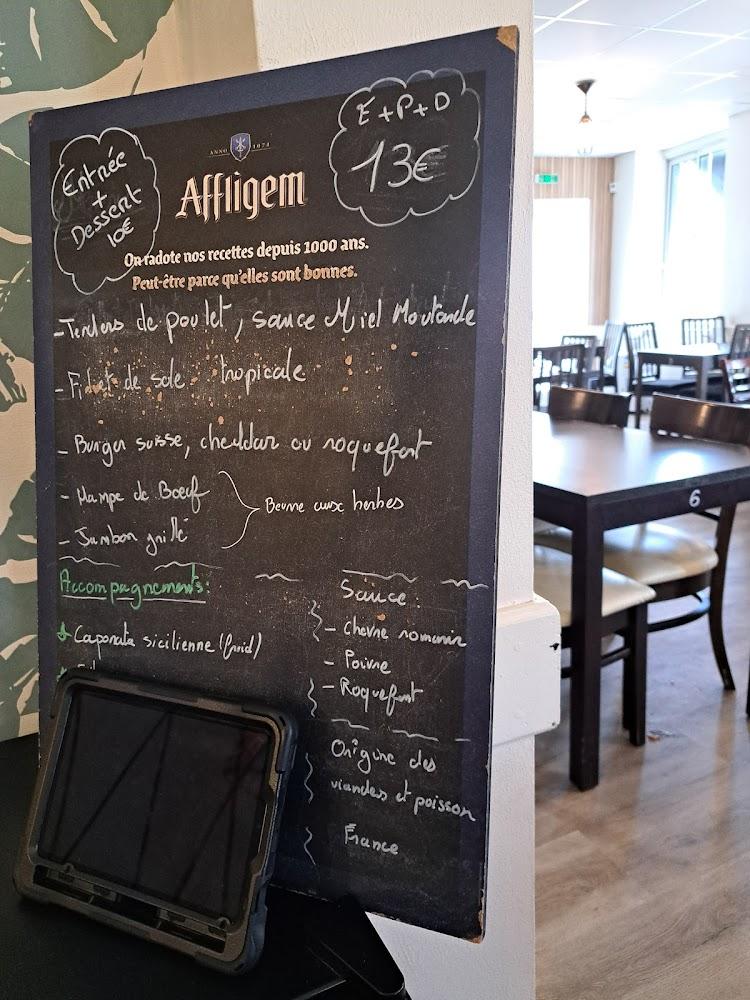 Entrée
+
Dessert
10€
E+P+D
13€
ANNO 1074
Affligem
On radote nos recettes depuis 1000 ans.
Peut-être parce qu'elles sont bonnes.
- Tenders de poulet, sauce Miel Moutarde
- Filet de sole tropicale
- Burger suisse, cheddar ou roquefort
- Hampe de Bœuf
- Jambon grillé
Beurre aux herbes
Accompagnements:
Caponata sicilienne (froid)
Sauce:
- Chèvre romarin
- Poivre
- Roquefort
Origine des
viandes et poisson
France
6